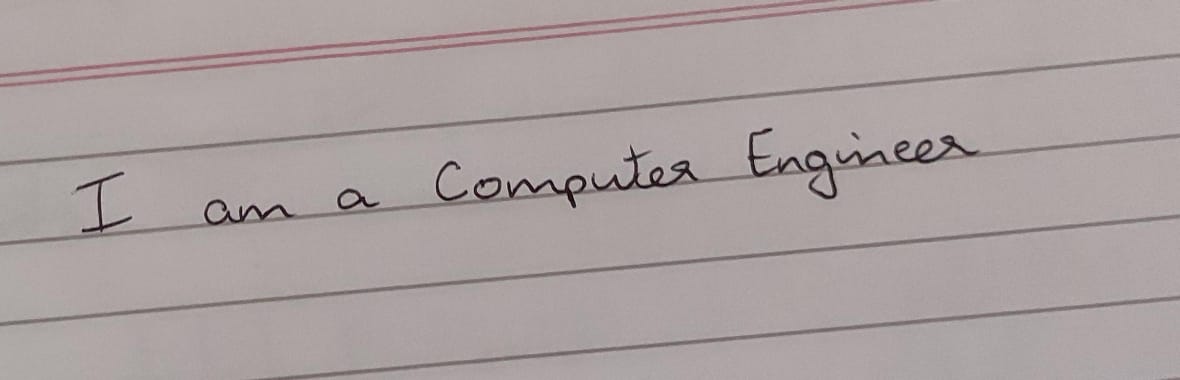 I am a Computer Engineer